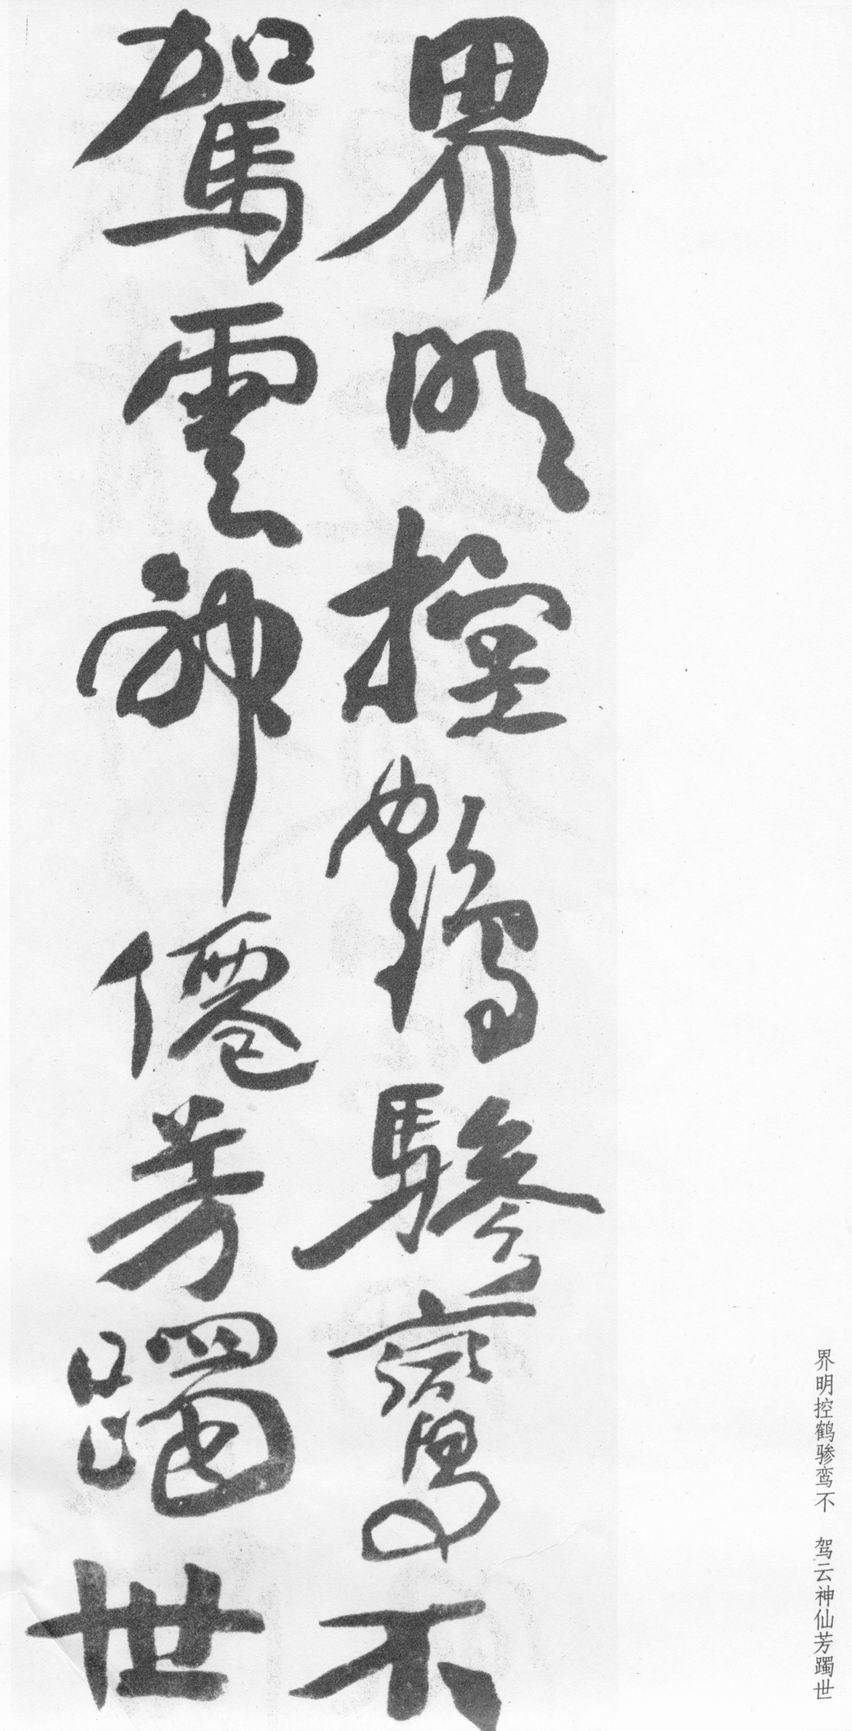 界明控鶴驂鸞不
駕雲神僊芳躅世
界明控鹤骖鸾不　驾云神仙芳躅世